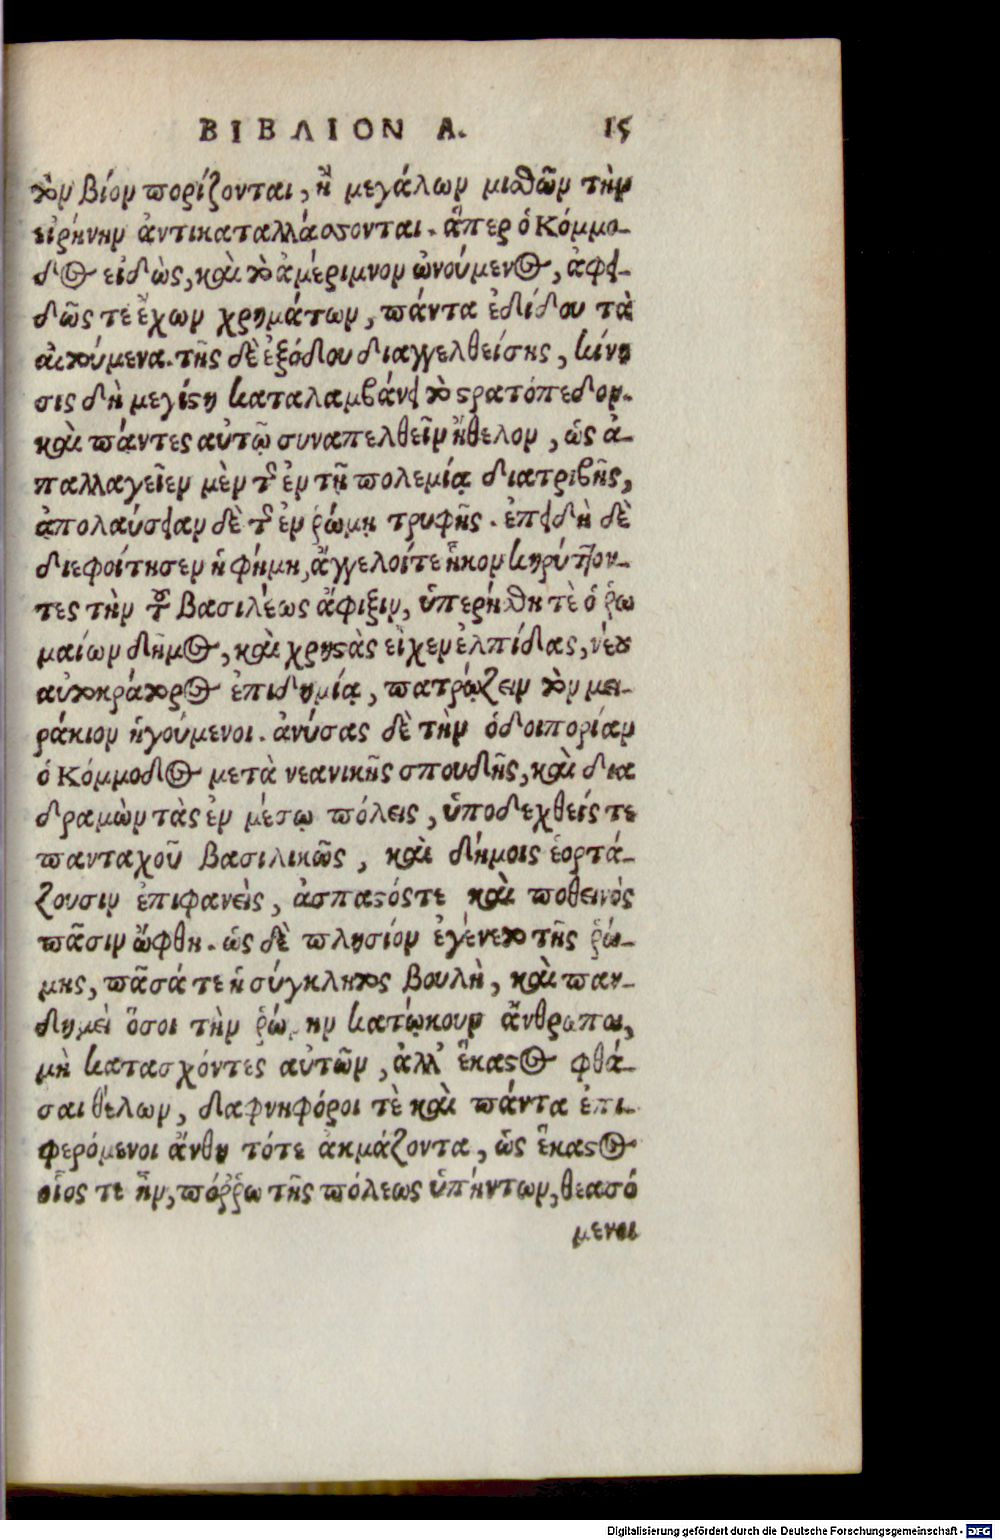 ΒΙΒΛΙΟΝ Α. 15
τὸν βίον πορίζονται, ἢ μεγάλων μισθῶν τὴν
εἰρήνην ἀντικαταλλάσσονται. ἅπερ ὁ Κόμμο-
δος εἰδὼς, καὶ τὸ ἀμέριμνον ὠνούμενος, ἀφει-
δῶς τε ἔχων χρημάτων, πάντα ἐδίδου τὰ
αἰτούμενα. τῆς δὲ ἐξόδου διαγγελθείσης, κίνη
σις δὴ μεγίστη καταλαμβάνει τὸ στρατόπεδον.
καὶ πάντες αὐτῷ συναπελθεῖν ἤθελον, ὡς ἀ-
παλλαγεῖεν μὲν τῆς ἐν τῇ πολεμίᾳ διατριβῆς,
ἀπολαύσειαν δὲ τῆς ἐν ῥώμῃ τρυφῆς. ἐπειδὴ δὲ
διεφοίτησεν ἡ φήμη, ἄγγελοί τε ἧκον κηρύττον-
τες τὴν τοῦ βασιλέως ἄφιξιν, ὑπερήσθη τὲ ὁ ῥω
μαίων δῆμος, καὶ χρηστὰς εἶχεν ἐλπίδας, νέου
αὐτοκράτορος ἐπιδημίᾳ, πατρῴζειν τὸν μει-
ράκιον ἡγούμενοι. ἀνύσας δὲ τὴν ὁδοιπορίαν
ὁ Κόμμοδος μετὰ νεανικῆς σπουδῆς, καὶ δια
δραμὼν τὰς ἐν μέσῳ πόλεις, ὑποδεχθείς τε
πανταχοῦ βασιλικῶς, καὶ δήμοις ἑορτά-
ζουσιν ἐπιφανεὶς, ἀσπαστός τε καὶ ποθεινὸς
πᾶσιν ὤφθη. ὡς δὲ πλησίον ἐγένετο τῆς ῥώ-
μης, πᾶσά τε ἡ σύγκλητος βουλὴ, καὶ παν-
δημεὶ ὅσοι τὴν ῥώμην κατῴκουν ἄνθρωποι,
μὴ κατασχόντες αὐτῶν, ἀλλ' ἕκαστος φθά-
σαι θέλων, δαφνηφόροι τὲ καὶ πάντα ἐπι-
φερόμενοι ἄνθη τότε ἀκμάζοντα, ὡς ἕκαστος
οἷος τε ἦν, πόῤῥω τῆς πόλεως ὑπήντων, θεασό
μενοι
Digitalisierung gefördert durch die Deutsche Forschungsgemeinschaft - DFG